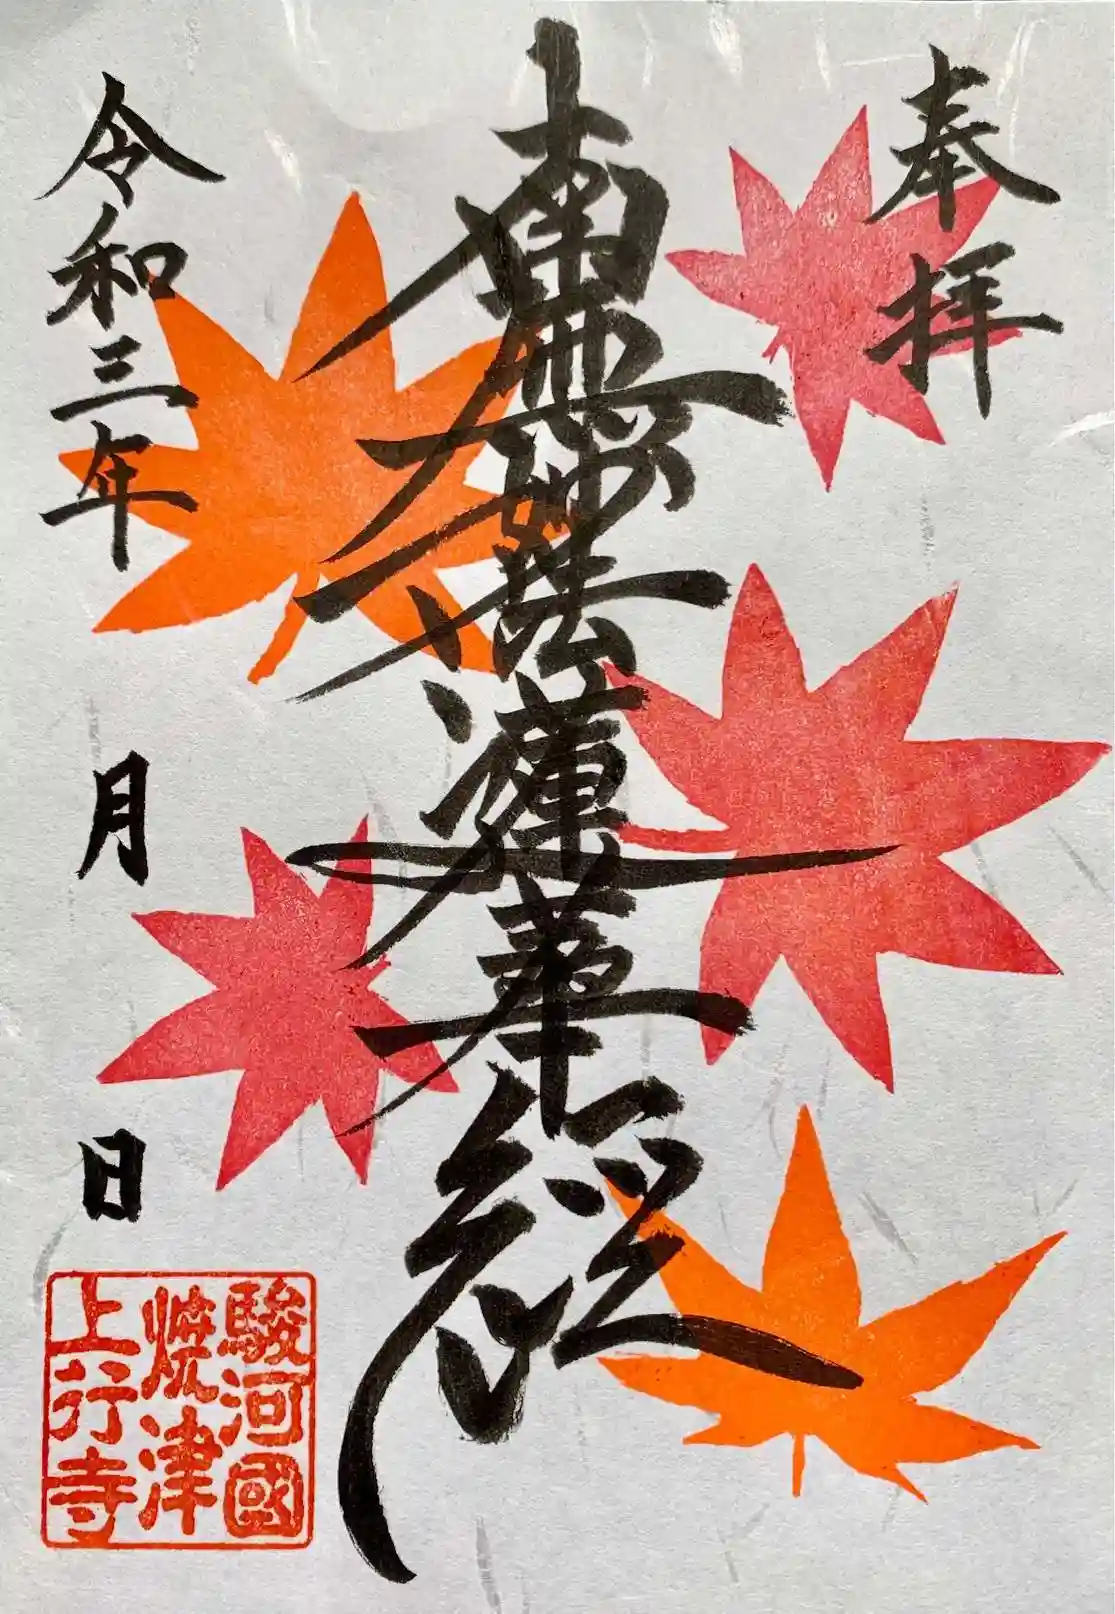 奉拝
南無妙法蓮華経
令和三年 月 日
駿河國
焼津
上行寺